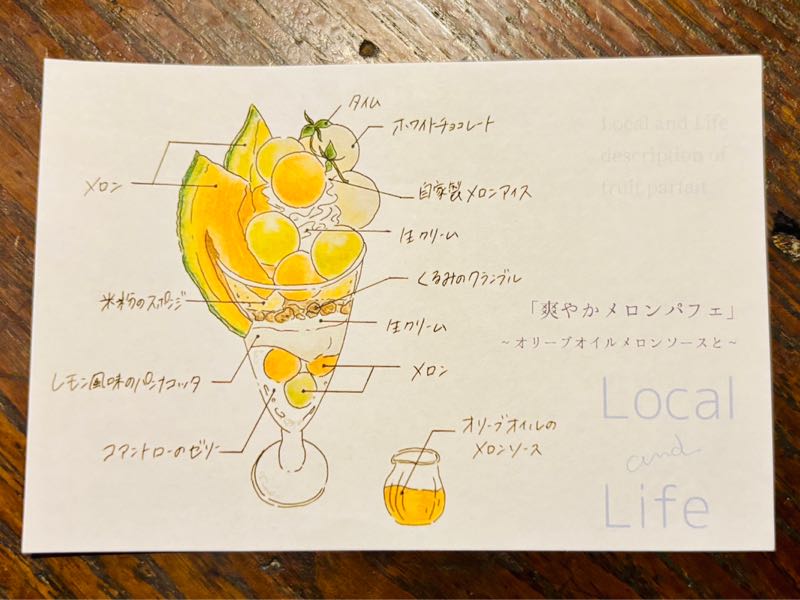 タイム
ホワイトチョコレート
メロン
自家製メロンアイス
生クリーム
くるみのクランブル
米粉のスポンジ
生クリーム
レモン風味のパンナコッタ
メロン
コアントローのゼリー
オリーブオイルの
メロンソース
Local and Life
description of
fruit parfait
「爽やかメロンパフェ」
~オリーブオイルメロンソースと~
Local
and
Life